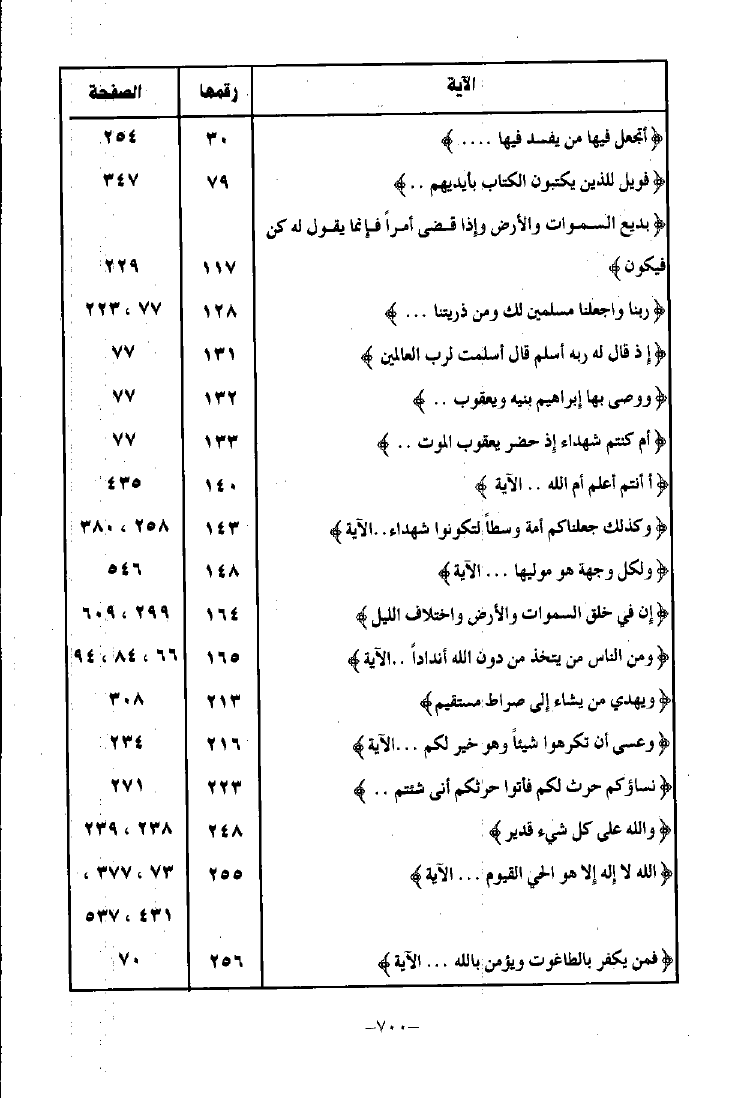 الآية رقمها الصفحة
﴿ أتجعل فيها من يفسد فيها .... ﴾ ٣٠ ٢٥٤
﴿ فويل للذين يكتبون الكتاب بأيديهم .. ﴾ ٧٩ ٣٤٧
﴿ بديع السموات والأرض وإذا قضى أمراً فإنما يقول له كن
فيكون ﴾ ١١٧ ٢٢٩
﴿ ربنا واجعلنا مسلمين لك ومن ذريتنا ... ﴾ ١٢٨ ٧٧ ، ٢٢٣
﴿ إذ قال له ربه أسلم قال أسلمت لرب العالمين ﴾ ١٣١ ٧٧
﴿ ووصى بها إبراهيم بنيه ويعقوب .. ﴾ ١٣٢ ٧٧
﴿ أم كنتم شهداء إذ حضر يعقوب الموت .. ﴾ ١٣٣ ٧٧
﴿ أ أنتم أعلم أم الله .. الآية ﴾ ١٤٠ ٤٣٥
﴿ وكذلك جعلناكم أمة وسطاً لتكونوا شهداء..الآية ﴾ ١٤٣ ٢٥٨ ، ٣٨٠
﴿ ولكل وجهة هو موليها ... الآية ﴾ ١٤٨ ٥٤٦
﴿ إن في خلق السموات والأرض واختلاف الليل ﴾ ١٦٤ ٢٩٩ ، ٦٠٩
﴿ ومن الناس من يتخذ من دون الله أنداداً ..الآية ﴾ ١٦٥ ٦٦ ، ٨٤ ، ٩٤
﴿ ويهدي من يشاء إلى صراط مستقيم ﴾ ٢١٣ ٣٠٨
﴿ وعسى أن تكرهوا شيئاً وهو خير لكم ...الآية ﴾ ٢١٦ ٢٣٤
﴿ نساؤكم حرث لكم فأتوا حرثكم أنى شئتم .. ﴾ ٢٢٣ ٢٧١
﴿ والله على كل شيء قدير ﴾ ٢٤٨ ٢٣٨ ، ٢٣٩
﴿ الله لا إله إلا هو الحي القيوم ... الآية ﴾ ٢٥٥ ٧٣ ، ٣٧٧ ،
٤٣١ ، ٥٣٧
﴿ فمن يكفر بالطاغوت ويؤمن بالله ... الآية ﴾ ٢٥٦ ٧٠
–٧٠٠–